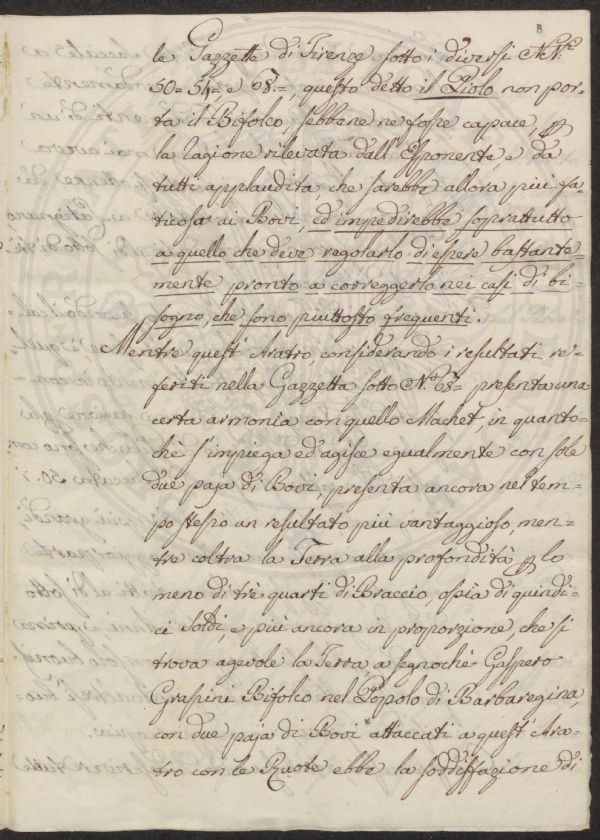 5
le Gazzette di Firenze sotto i diversi N.N.ri
50= 54= e 68.=, questo detto il Piolo non por=
ta il Bifolco, sebbene ne fosse capace, p
la ragione rilevata dall'Esponente, e da
tutti applaudita, che sarebbe allora più fa=
ticosa ai Bovi, ed impedirebbe soprattutto
a quello che deve regolarlo di essere bastante=
mente pronto a correggerlo nei casi di bi=
sogno, che sono piuttosto frequenti.
Mentre quest'Aratro, considerando i resultati re=
feriti nella Gazzetta sotto N.o 68= presenta una
certa armonia con quello Machet, in quanto=
chè s'impiega ed agisce egualmente con sole
due paja di Bovi, presenta ancora nel tem=
po stesso un resultato più vantaggioso, men=
tre coltra la Terra alla profondità p lo
meno di trè quarti di Braccio, ossia di quindi=
ci Soldi, e più ancora in proporzione, che si
trova agevole la Terra a segnochè Gaspero
Graspini Bifolco nel Popolo di Barbaregina,
con due paja di Bovi attaccati a quest'Ara=
tro con le Ruote ebbe la soddisfazione di